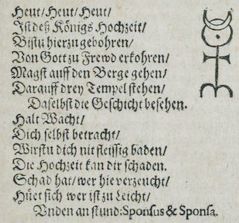 Heut/ Heut/ Heut/
Ist deß Königs Hochzeit/
Bistu hierzu gebohren/
Von Gott zu Frewd erkohren/
Magst auff den Berge gehen/
Darauff drey Tempel stehen/
Daselbst die Geschicht besehen.
Halt Wacht/
Dich selbst betracht/
Wirstu dich nit fleissig baden/
Die Hochzeit kan dir schaden.
Schad hat/ wer hie verzeucht/
Hüet sich wer ist zu Leicht/
Vnden an stund: Sponsus & Sponsa.